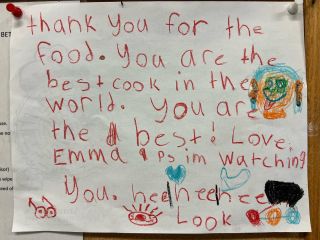 thank you for the
food. You are the
best cook in the
world. You are
the best! Love,
Emma Ps im watching
You. heeheehee
Look
BET